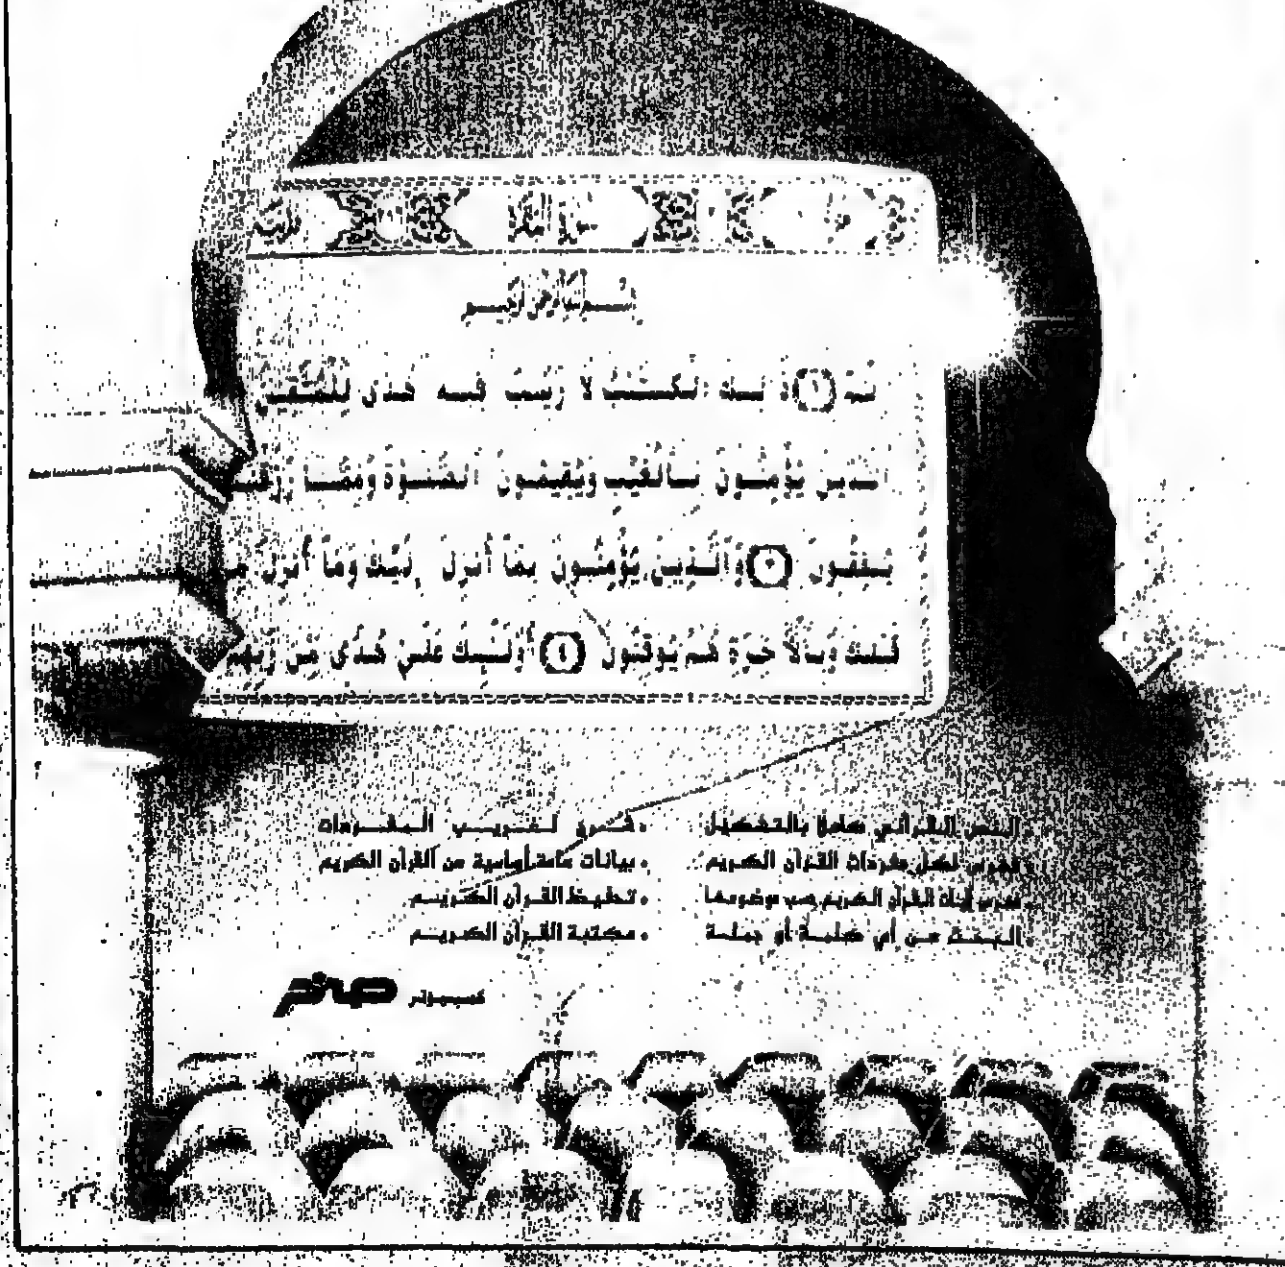 سورة البقرة
بسم الله الرحمن الرحيم
الم (١) ذلك الكتب لا ريب فيه هدى للمتقين
الذين يؤمنون بالغيب ويقيمون الصلوة ومما رزقنـ
ينفقون (٣) والذين يؤمنون بما أنزل إليك وما أنزل مـ
قبلك وبالآخرة هم يوقنون (٤) أولئك على هدى من ربهم
• النص القرآني كاملا بالتشكيل
• فهرس لكل مفردات القرآن الكريم
• فهرس آيات القرآن الكريم حسب موضوعها
• البحث عن أي كلمة أو جملة
• شرح لغريب المفردات
• بيانات عامة أساسية عن القرآن الكريم
• تحفيظ القرآن الكريم
• مكتبة القرآن الكريم
كمبيوتر صخر